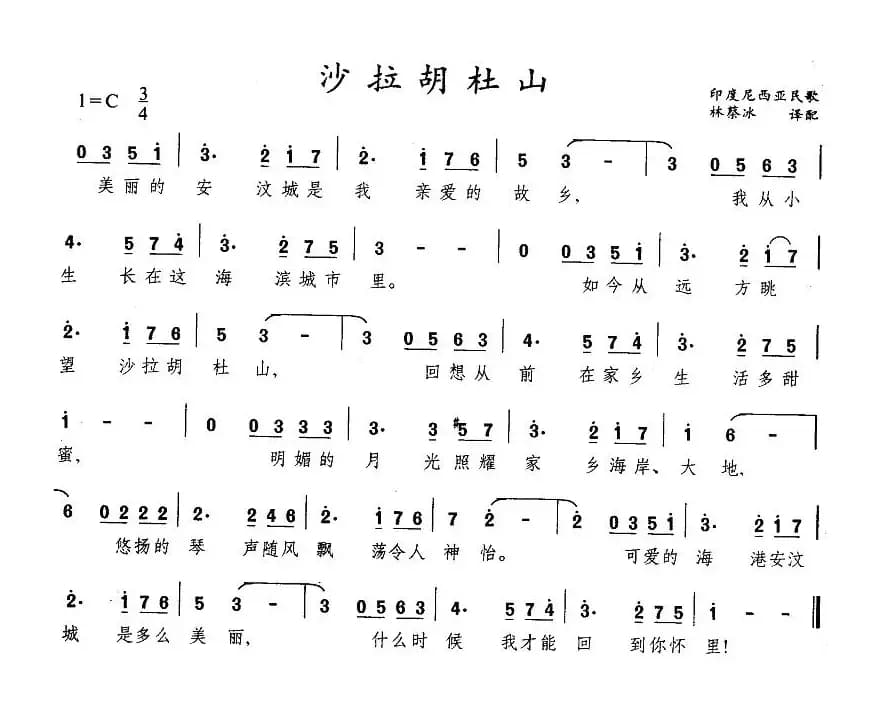 沙拉胡杜山
1=C 3/4
印度尼西亚民歌
林蔡冰 译配
0 3 5 i | 3̇· 2̇ i 7 | 2̇· i 7 6 | 5 3 - | 3 0 5 6 3 |
美丽的安 汶城是我 亲爱的故乡, 我从小
4· 5 7 4̇ | 3̇· 2̇ 7 5 | 3 - - | 0 0 3 5 i | 3̇· 2̇ i 7 |
生 长在这海 滨城市里。 如今从远 方眺
2̇· i 7 6 | 5 3 - | 3 0 5 6 3 | 4· 5 7 4̇ | 3̇· 2̇ 7 5 |
望 沙拉胡杜山, 回想从前 在家乡生 活多甜
i - - | 0 0 3 3 3 | 3· 3 #5 7 | 3̇· 2̇ i 7 | i 6 - |
蜜, 明媚的月 光照耀家 乡海岸、大地,
6 0 2 2 2 | 2· 2 4 6 | 2̇· i 7 6 | 7 2̇ - | 2̇ 0 3 5 i | 3̇· 2̇ i 7 |
悠扬的琴 声随风飘 荡令人神怡。 可爱的海 港安汶
2̇· i 7 6 | 5 3 - | 3 0 5 6 3 | 4· 5 7 4̇ | 3̇· 2̇ 7 5 | i - ‖
城 是多么美丽, 什么时候 我才能回 到你怀里!